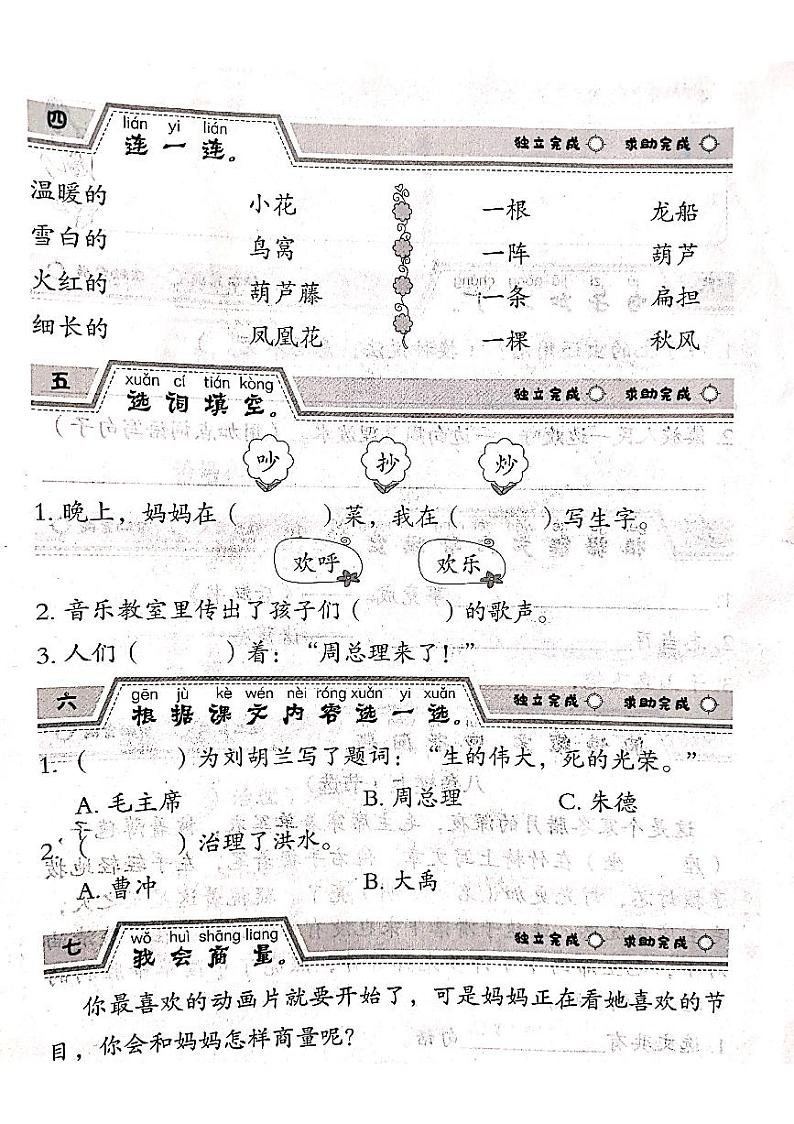 四 lián yi lián 连一连。 独立完成 求助完成
温暖的 小花 一根 龙船
雪白的 鸟窝 一阵 葫芦
火红的 葫芦藤 一条 扁担
细长的 凤凰花 一棵 秋风
五 xuǎn cí tián kòng 选词填空。 独立完成 求助完成
吵 抄 炒
1. 晚上，妈妈在（ ）菜，我在（ ）写生字。
欢呼 欢乐
2. 音乐教室里传出了孩子们（ ）的歌声。
3. 人们（ ）着：“周总理来了！”
六 gēn jù kè wén nèi róng xuǎn yi xuǎn 根据课文内容选一选。 独立完成 求助完成
1. （ ）为刘胡兰写了题词：“生的伟大，死的光荣。”
A. 毛主席 B. 周总理 C. 朱德
2. （ ）治理了洪水。
A. 曹冲 B. 大禹
七 wǒ huì shāng liang 我会商量。 独立完成 求助完成
你最喜欢的动画片就要开始了，可是妈妈正在看她喜欢的节
目，你会和妈妈怎样商量呢？